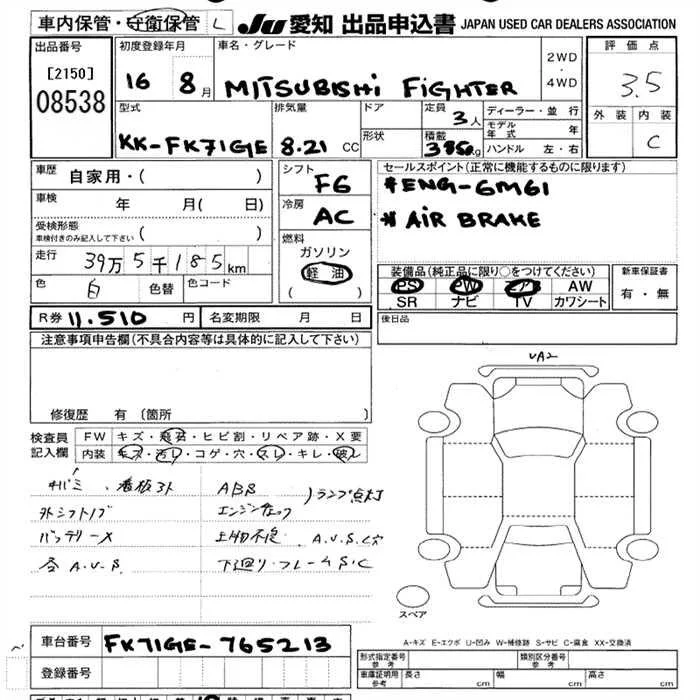 車内保管・守衛保管 L
JU 愛知 出品申込書 JAPAN USED CAR DEALERS ASSOCIATION
出品番号
[2150]
08538
初度登録年月
16 8月
車名・グレード
MITSUBISHI FIGHTER
2WD
・
4WD
評価点
3.5
外装 内装
C
型式
KK-FK71GE
排気量
8.21 CC
ドア
形状
定員
3人
積載
kg
ディーラー・並行
モデル年式 年
ハンドル 左・右
車歴
自家用・( )
車検
年 月( 日)
受検形態
車検付きのみ記入して下さい ( )
走行
39万5千185km
色
白
色替
色コード
シフト
F6
冷房
AC
燃料
ガソリン
軽油
( )
セールスポイント(正常に機能するものに限ります)
*ENG-6M61
*AIR BRAKE
装備品(純正品に限り○をつけてください)
PS PW エアB AW
SR ナビ TV カワシート
新車保証書
有・無
R券 11.510 円
名変期限 月 日
後日品
注意事項申告欄(不具合内容等は具体的に記入して下さい)
修復歴 有 (箇所
検査員
記入欄
FW キズ・飛石・ヒビ割・リペア跡・X要
内装 キズ・汚レ・コゲ・穴・スレ・キレ・破レ
看板跡
ABS
ランプ点灯
外シフトノブ
エンジンチェック
バッテリーX
上物不良 A.U.S.C穴
各A.U.S.
下廻り・フレームS.C
UA2
スペア
A-キズ E-エクボ U-凹み W-補修跡 S-サビ C-腐食 XX-交換済
車台番号
FK71GE-765213
登録番号
型式指定番号
参考
類別区分番号
参考
車庫証明用
参考
長さ cm
幅 cm
高さ cm